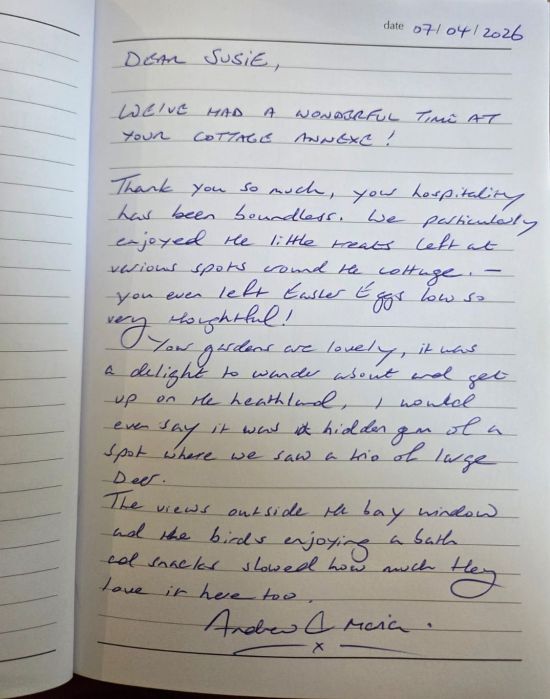 date 07/04/2026
DEAR SUSIE,
WE'VE HAD A WONDERFUL TIME AT
YOUR COTTAGE ANNEXE!
Thank you so much, your hospitality
has been boundless. We particularly
enjoyed the little treats left at
various spots around the cottage. —
you even left Easter Eggs how so
very thoughtful!
Your gardens are lovely, it was
a delight to wander about and get
up on the heathland, I would
even say it was a hidden gem of a
spot where we saw a trio of large
Deer.
The views outside the bay window
and the birds enjoying a bath
and snacks showed how much they
love it here too.
Andrew & Maria.
x